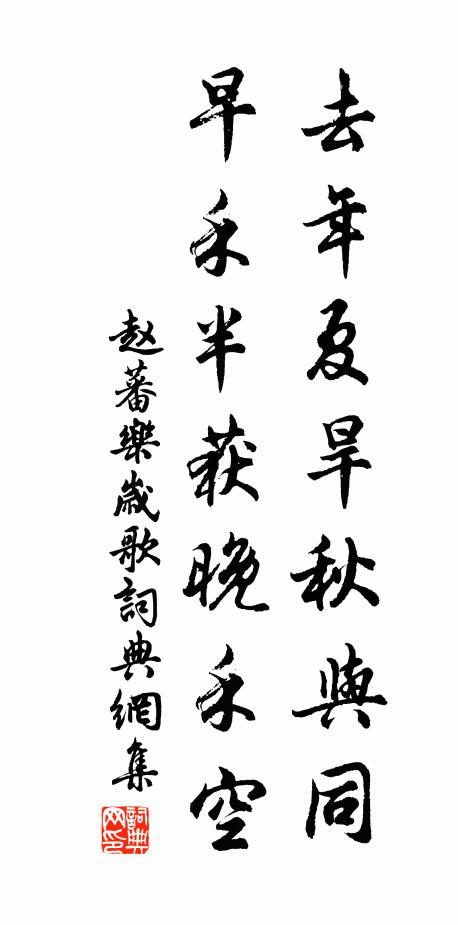 去年夏旱秋與同
早禾半获晚禾空
赵蕃樂歲歌詞典網集
詞典网印